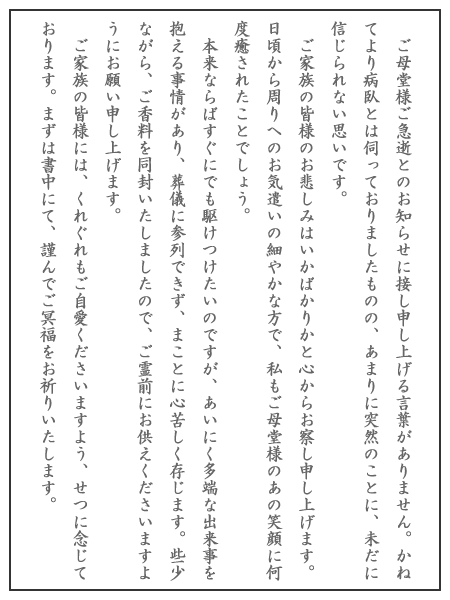 ご母堂様ご急逝とのお知らせに接し申し上げる言葉がありません。かね
てより病臥とは伺っておりましたものの、あまりに突然のことに、未だに
信じられない思いです。
　ご家族の皆様のお悲しみはいかばかりかと心からお察し申し上げます。
日頃から周りへのお気遣いの細やかな方で、私もご母堂様のあの笑顔に何
度癒されたことでしょう。
　本来ならばすぐにでも駆けつけたいのですが、あいにく多端な出来事を
抱える事情があり、葬儀に参列できず、まことに心苦しく存じます。些少
ながら、ご香料を同封いたしましたので、ご霊前にお供えくださいますよ
うにお願い申し上げます。
　ご家族の皆様には、くれぐれもご自愛くださいますよう、せつに念じて
おります。まずは書中にて、謹んでご冥福をお祈りいたします。